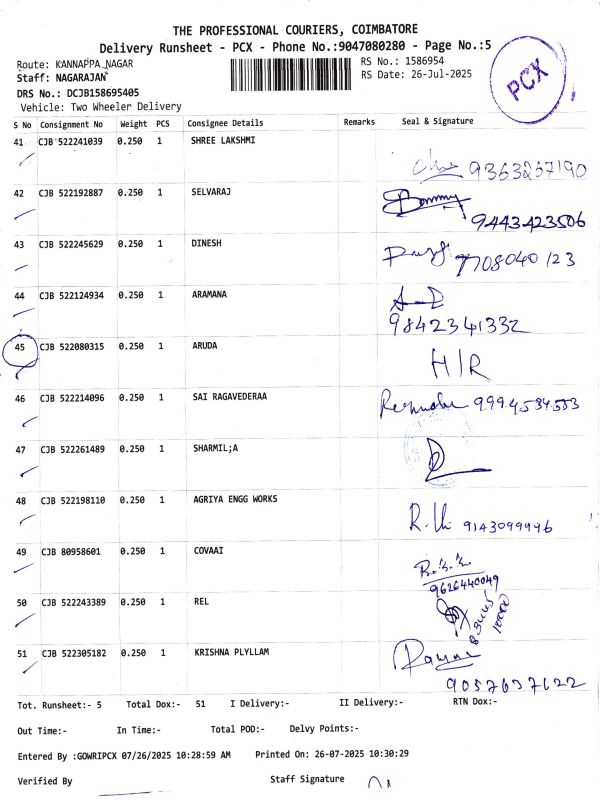 THE PROFESSIONAL COURIERS, COIMBATORE
Delivery Runsheet - PCX - Phone No.:9047080280 - Page No.:5
Route: KANNAPPA_NAGAR
RS No.: 1586954
Staff: NAGARAJAN
RS Date: 26-Jul-2025
DRS No.: DCJB158695405
Vehicle: Two Wheeler Delivery
PCX
S No Consignment No Weight PCS Consignee Details Remarks Seal & Signature
41 CJB 522241039 0.250 1 SHREE LAKSHMI
9363267190
42 CJB 522192887 0.250 1 SELVARAJ
9443423506
43 CJB 522245629 0.250 1 DINESH
7708040123
44 CJB 522124934 0.250 1 ARAMANA
9842341332
45 CJB 522080315 0.250 1 ARUDA
H/R
46 CJB 522214096 0.250 1 SAI RAGAVEDERAA
47 CJB 522261489 0.250 1 SHARMIL;A
48 CJB 522198110 0.250 1 AGRIYA ENGG WORKS
49 CJB 80958601 0.250 1 COVAAI
9626440049
50 CJB 522243389 0.250 1 REL
51 CJB 522305182 0.250 1 KRISHNA PLYLLAM
9057637622
Tot. Runsheet:- 5 Total Dox:- 51 I Delivery:- II Delivery:- RTN Dox:-
Out Time:- In Time:- Total POD:- Delvy Points:-
Entered By :GOWRIPCX 07/26/2025 10:28:59 AM Printed On: 26-07-2025 10:30:29
Verified By Staff Signature